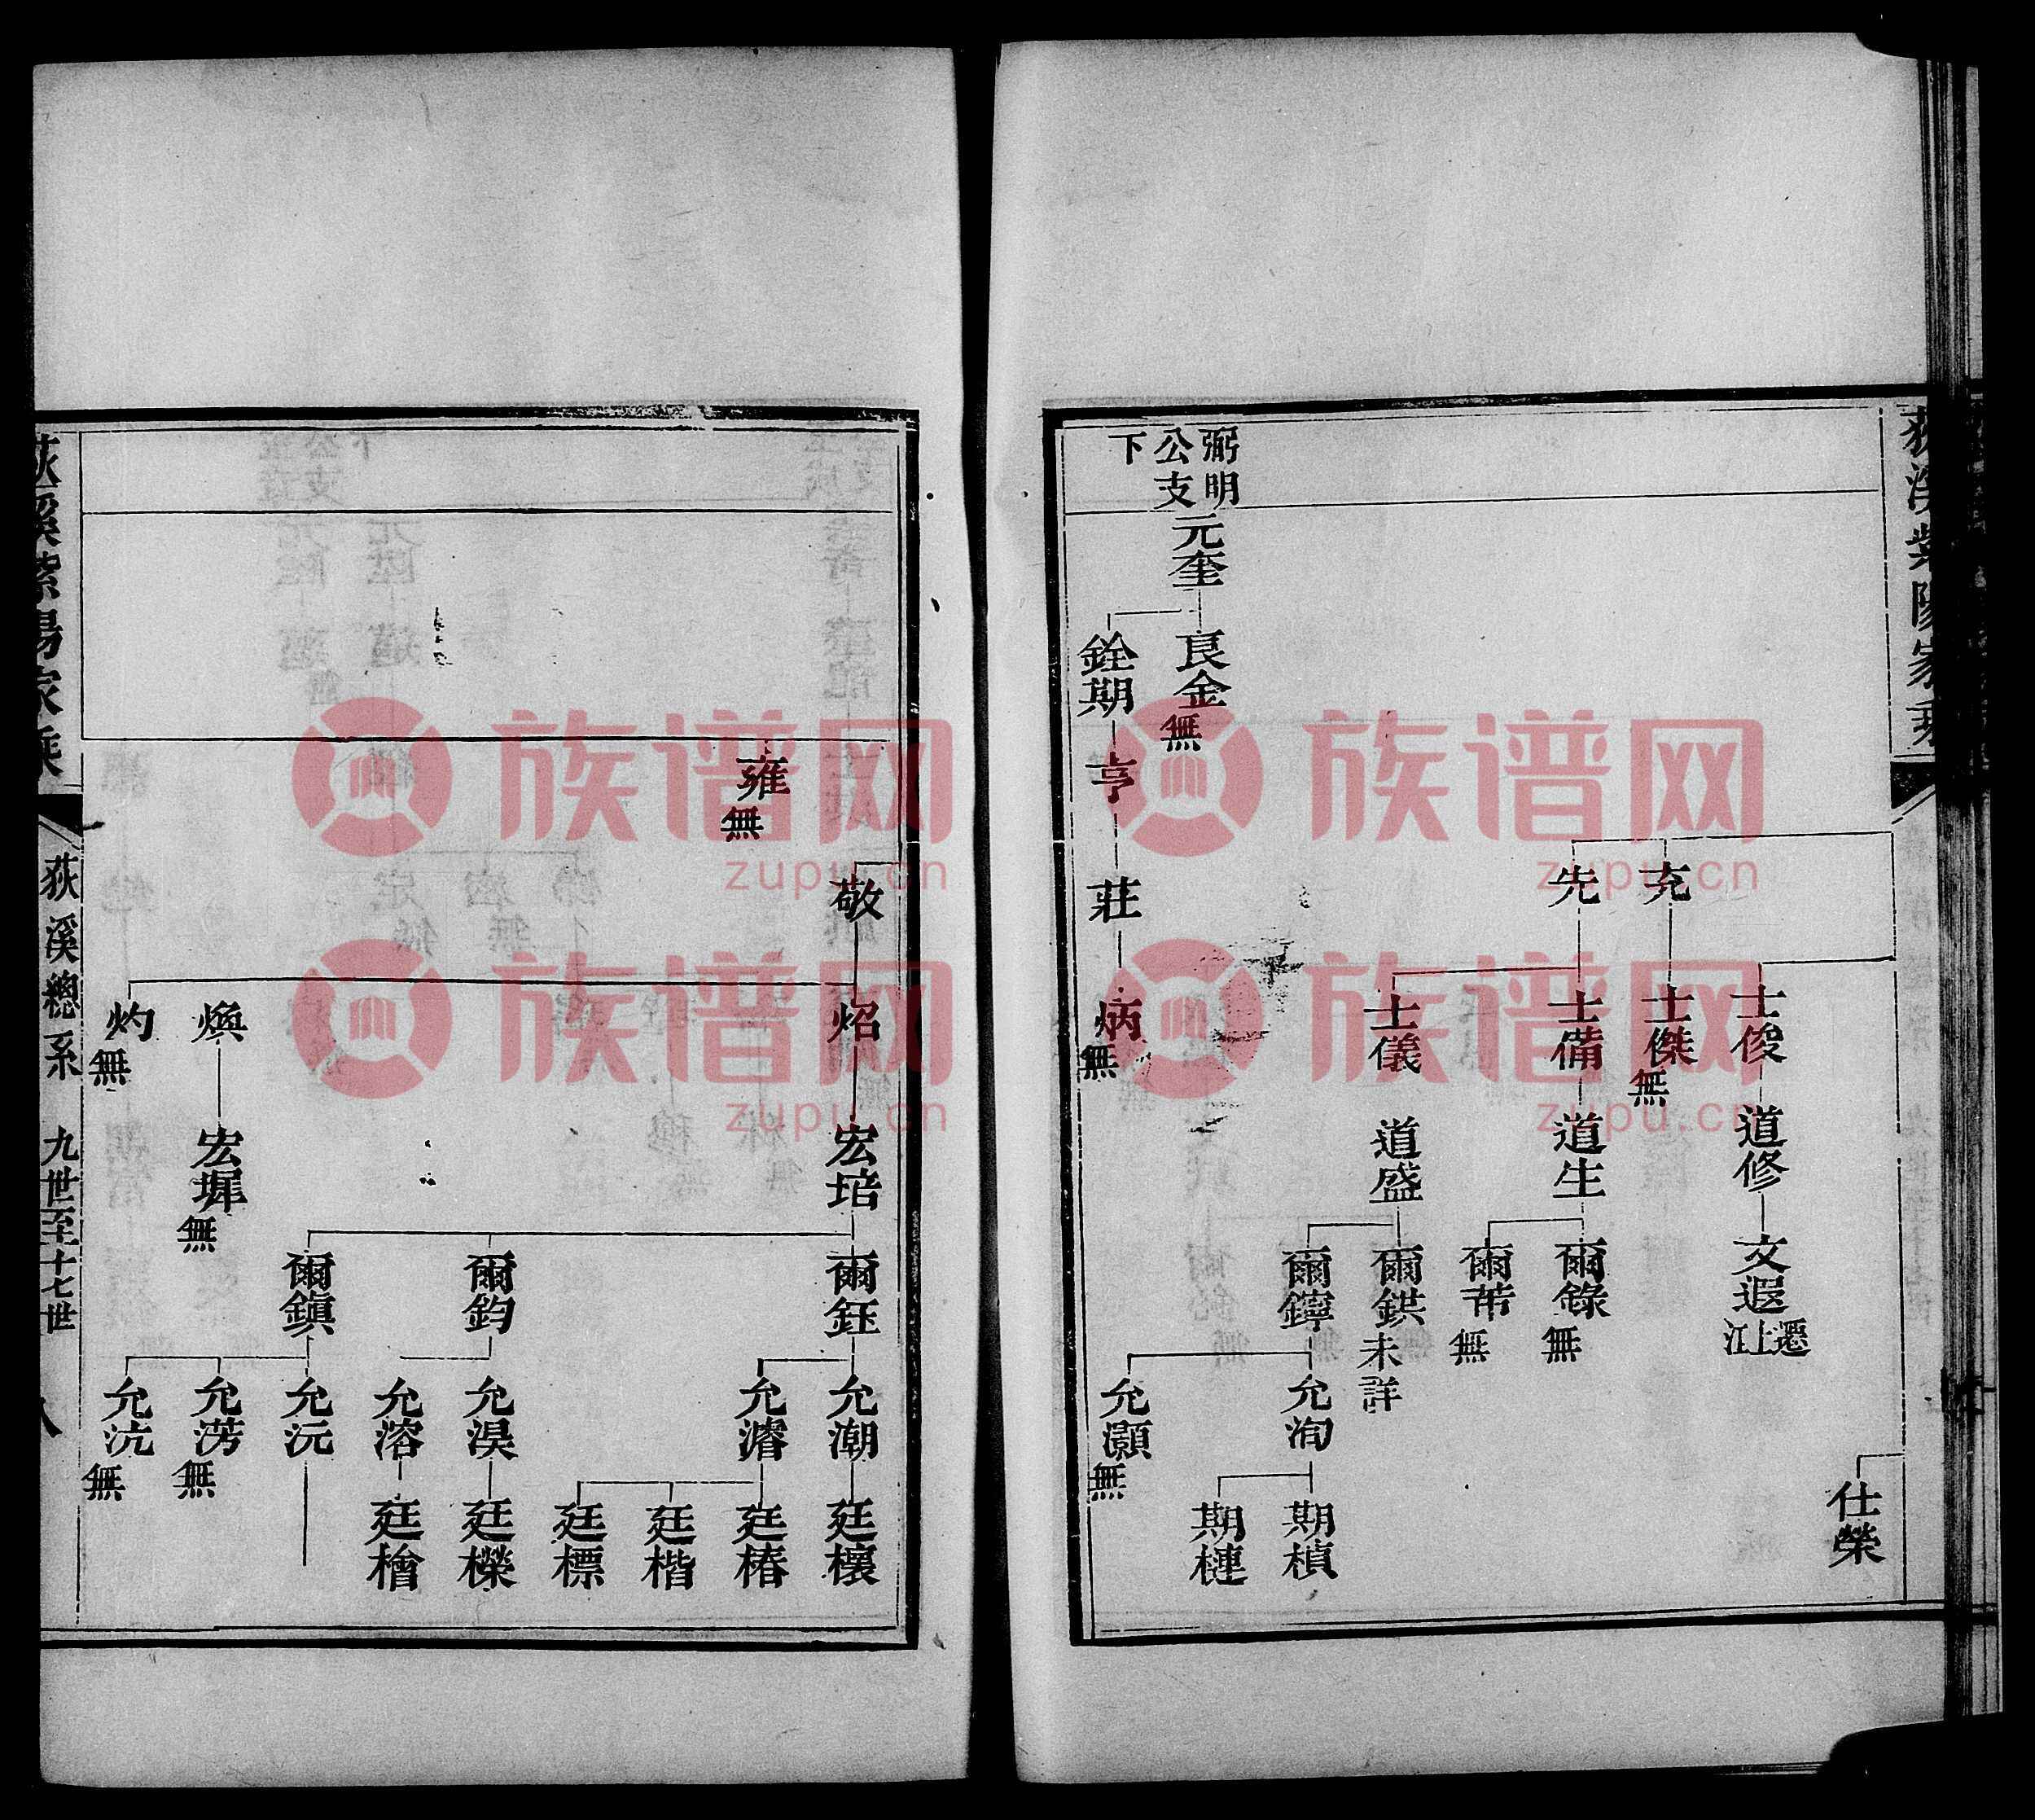 荻溪紫陽家乘
仕榮
士俊
道修
文遐
遷江上
充
士傑
無
先
士備
道生
爾錄
無
爾芾
無
士儀
道盛
爾鉷
未詳
爾鑏
允洵
期楨
期槤
允灝
無
弼明
公支
下
元奎
良金
無
銓期
亨
莊
炳
無
敬
炤
宏培
爾鈺
允潮
廷欀
允濬
廷椿
廷楷
廷標
雍
無
爾鈞
允淏
廷櫟
允溶
廷檜
爾鎮
允沅
允滂
無
允沆
無
煥
宏墀
無
灼
無
荻溪紫陽家乘
荻溪總系
九世至十七世
八
族谱网
zupu.cn
族谱网
zupu.cn
族谱网
zupu.cn
族谱网
zupu.cn